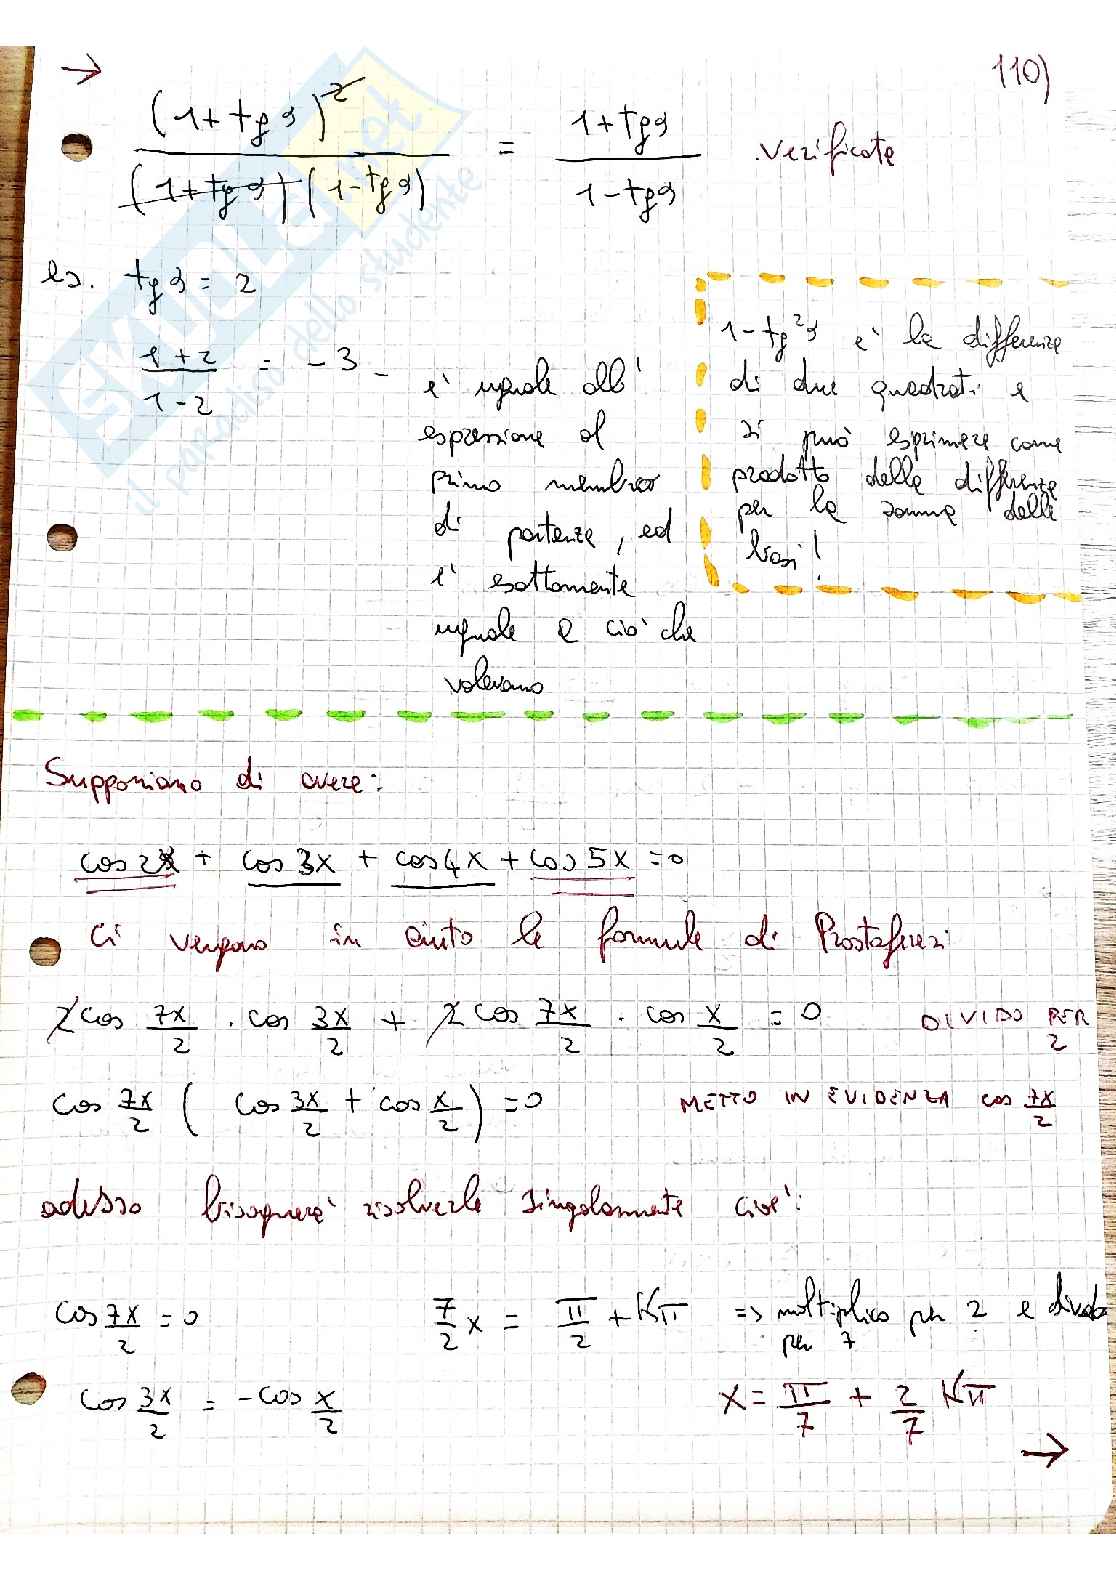 → 110)
(1+tgα)² / (1+tgα)(1-tgα) = 1+tgα / 1-tgα verificata
es. tgα = 2
1+2 / 1-2 = -3
è uguale all'
espressione al
primo membro
di partenza, ed
è esattamente
uguale a ciò che
volevamo
1-tg²α è la differenza
di due quadrati e
si può esprimere come
prodotto della differenza
per la somma delle
basi!
SKUOLA.net
il paradiso dello studente
Supponiamo di avere:
cos2x + cos3x + cos4x + cos5x = 0
Ci vengono in aiuto le formule di Prostaferesi
2cos 7x/2 . cos 3x/2 + 2cos 7x/2 . cos x/2 = 0 DIVIDO PER 2
cos 7x/2 ( cos 3x/2 + cos x/2 ) = 0 METTO IN EVIDENZA cos 7x/2
adesso bisognerà risolverle singolarmente cioè:
cos 7x/2 = 0 7/2 x = π/2 + Kπ => moltiplico per 2 e divido
per 7
cos 3x/2 = -cos x/2 x = π/7 + 2/7 Kπ
→